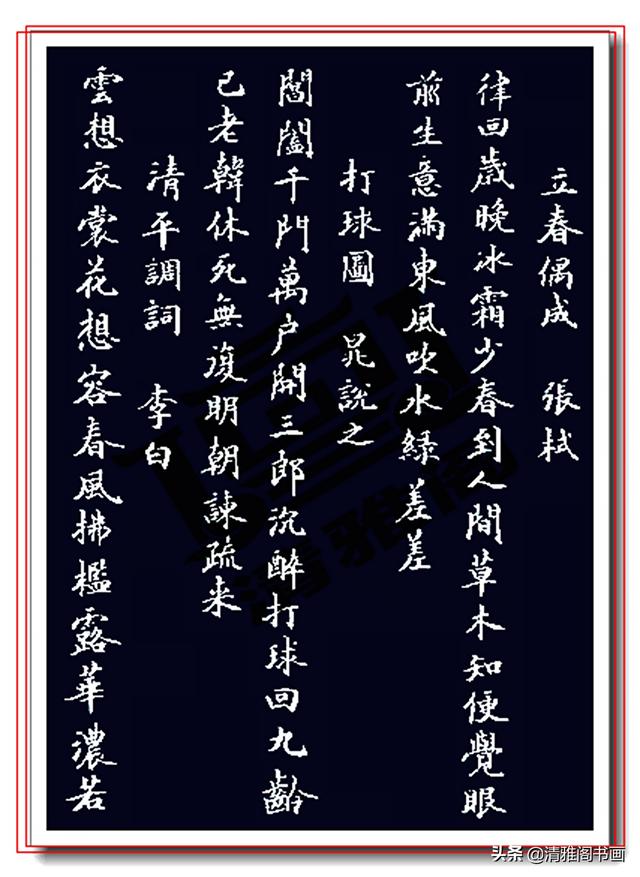 立春偶成 張栻
律回歲晚冰霜少春到人間草木知便覺眼
前生意滿東風吹水綠差差
打球圖 晁說之
閶闔千門萬户開三郎沉醉打球回九齡
已老韓休死無復明朝諫疏来
清平調詞 李白
雲想衣裳花想容春風拂檻露華濃若
清雅阁
头条 @清雅阁书画